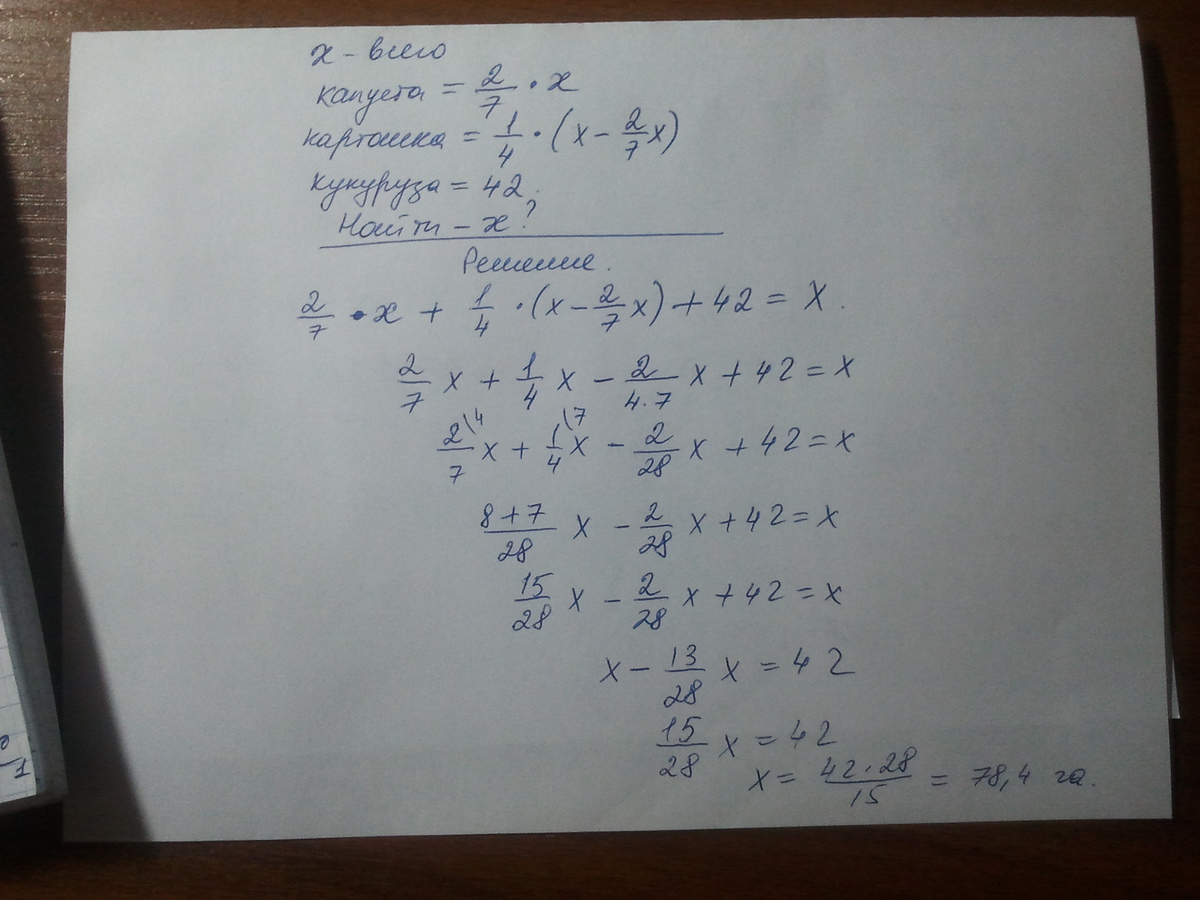 x - всего
капуста = 2/7 · x
карташка = 1/4 · (x - 2/7 x)
кукуруза = 42.
Найти - x?
Решение.
2/7 · x + 1/4 · (x - 2/7 x) + 42 = x.
2/7 x + 1/4 x - 2/(4·7) x + 42 = x
2/7 \4 x + 1/4 \7 x - 2/28 x + 42 = x
(8+7)/28 x - 2/28 x + 42 = x
15/28 x - 2/28 x + 42 = x
x - 13/28 x = 42
15/28 x = 42
x = (42·28)/15 = 78,4 га.